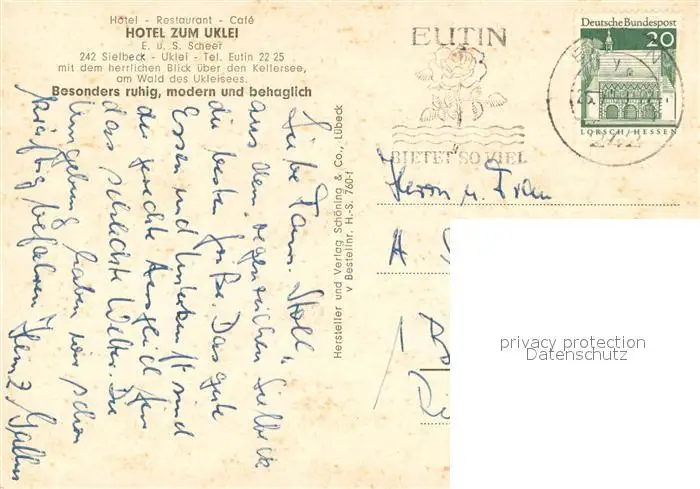 Hotel - Restaurant - Café
HOTEL ZUM UKLEI
E. u. S. Scheer
242 Sielbeck - Uklei - Tel. Eutin 22 25
mit dem herrlichen Blick über den Kellersee,
am Wald des Ukleisees.
Besonders ruhig, modern und behaglich
Liebe Fam. Stoll,
aus dem regenreichen Sielbeck
die besten Grüße. Das gute
Essen und Unterkunft sind
der gerechte Ausgleich für
das schlechte Wetter. Die
Umgebung haben wir schon
kräftig befahren.
Hersteller und Verlag Schöning & Co., Lübeck
v Bestellnr. H.-S. 760-f
EUTIN
BIETET SO VIEL
Deutsche Bundespost
20
LORSCH/HESSEN
242
Herrn u. Frau
A
privacy protection
Datenschutz